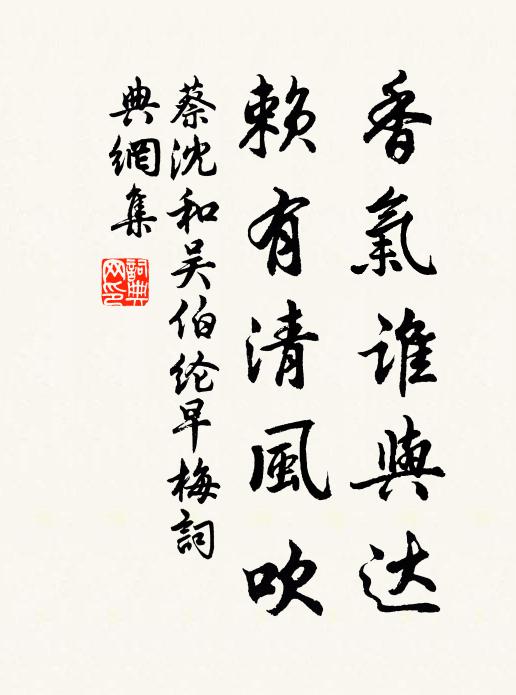 香氣誰與达
賴有清風吹
蔡沈和吴伯纶早梅詞
典網集
詞典
网印